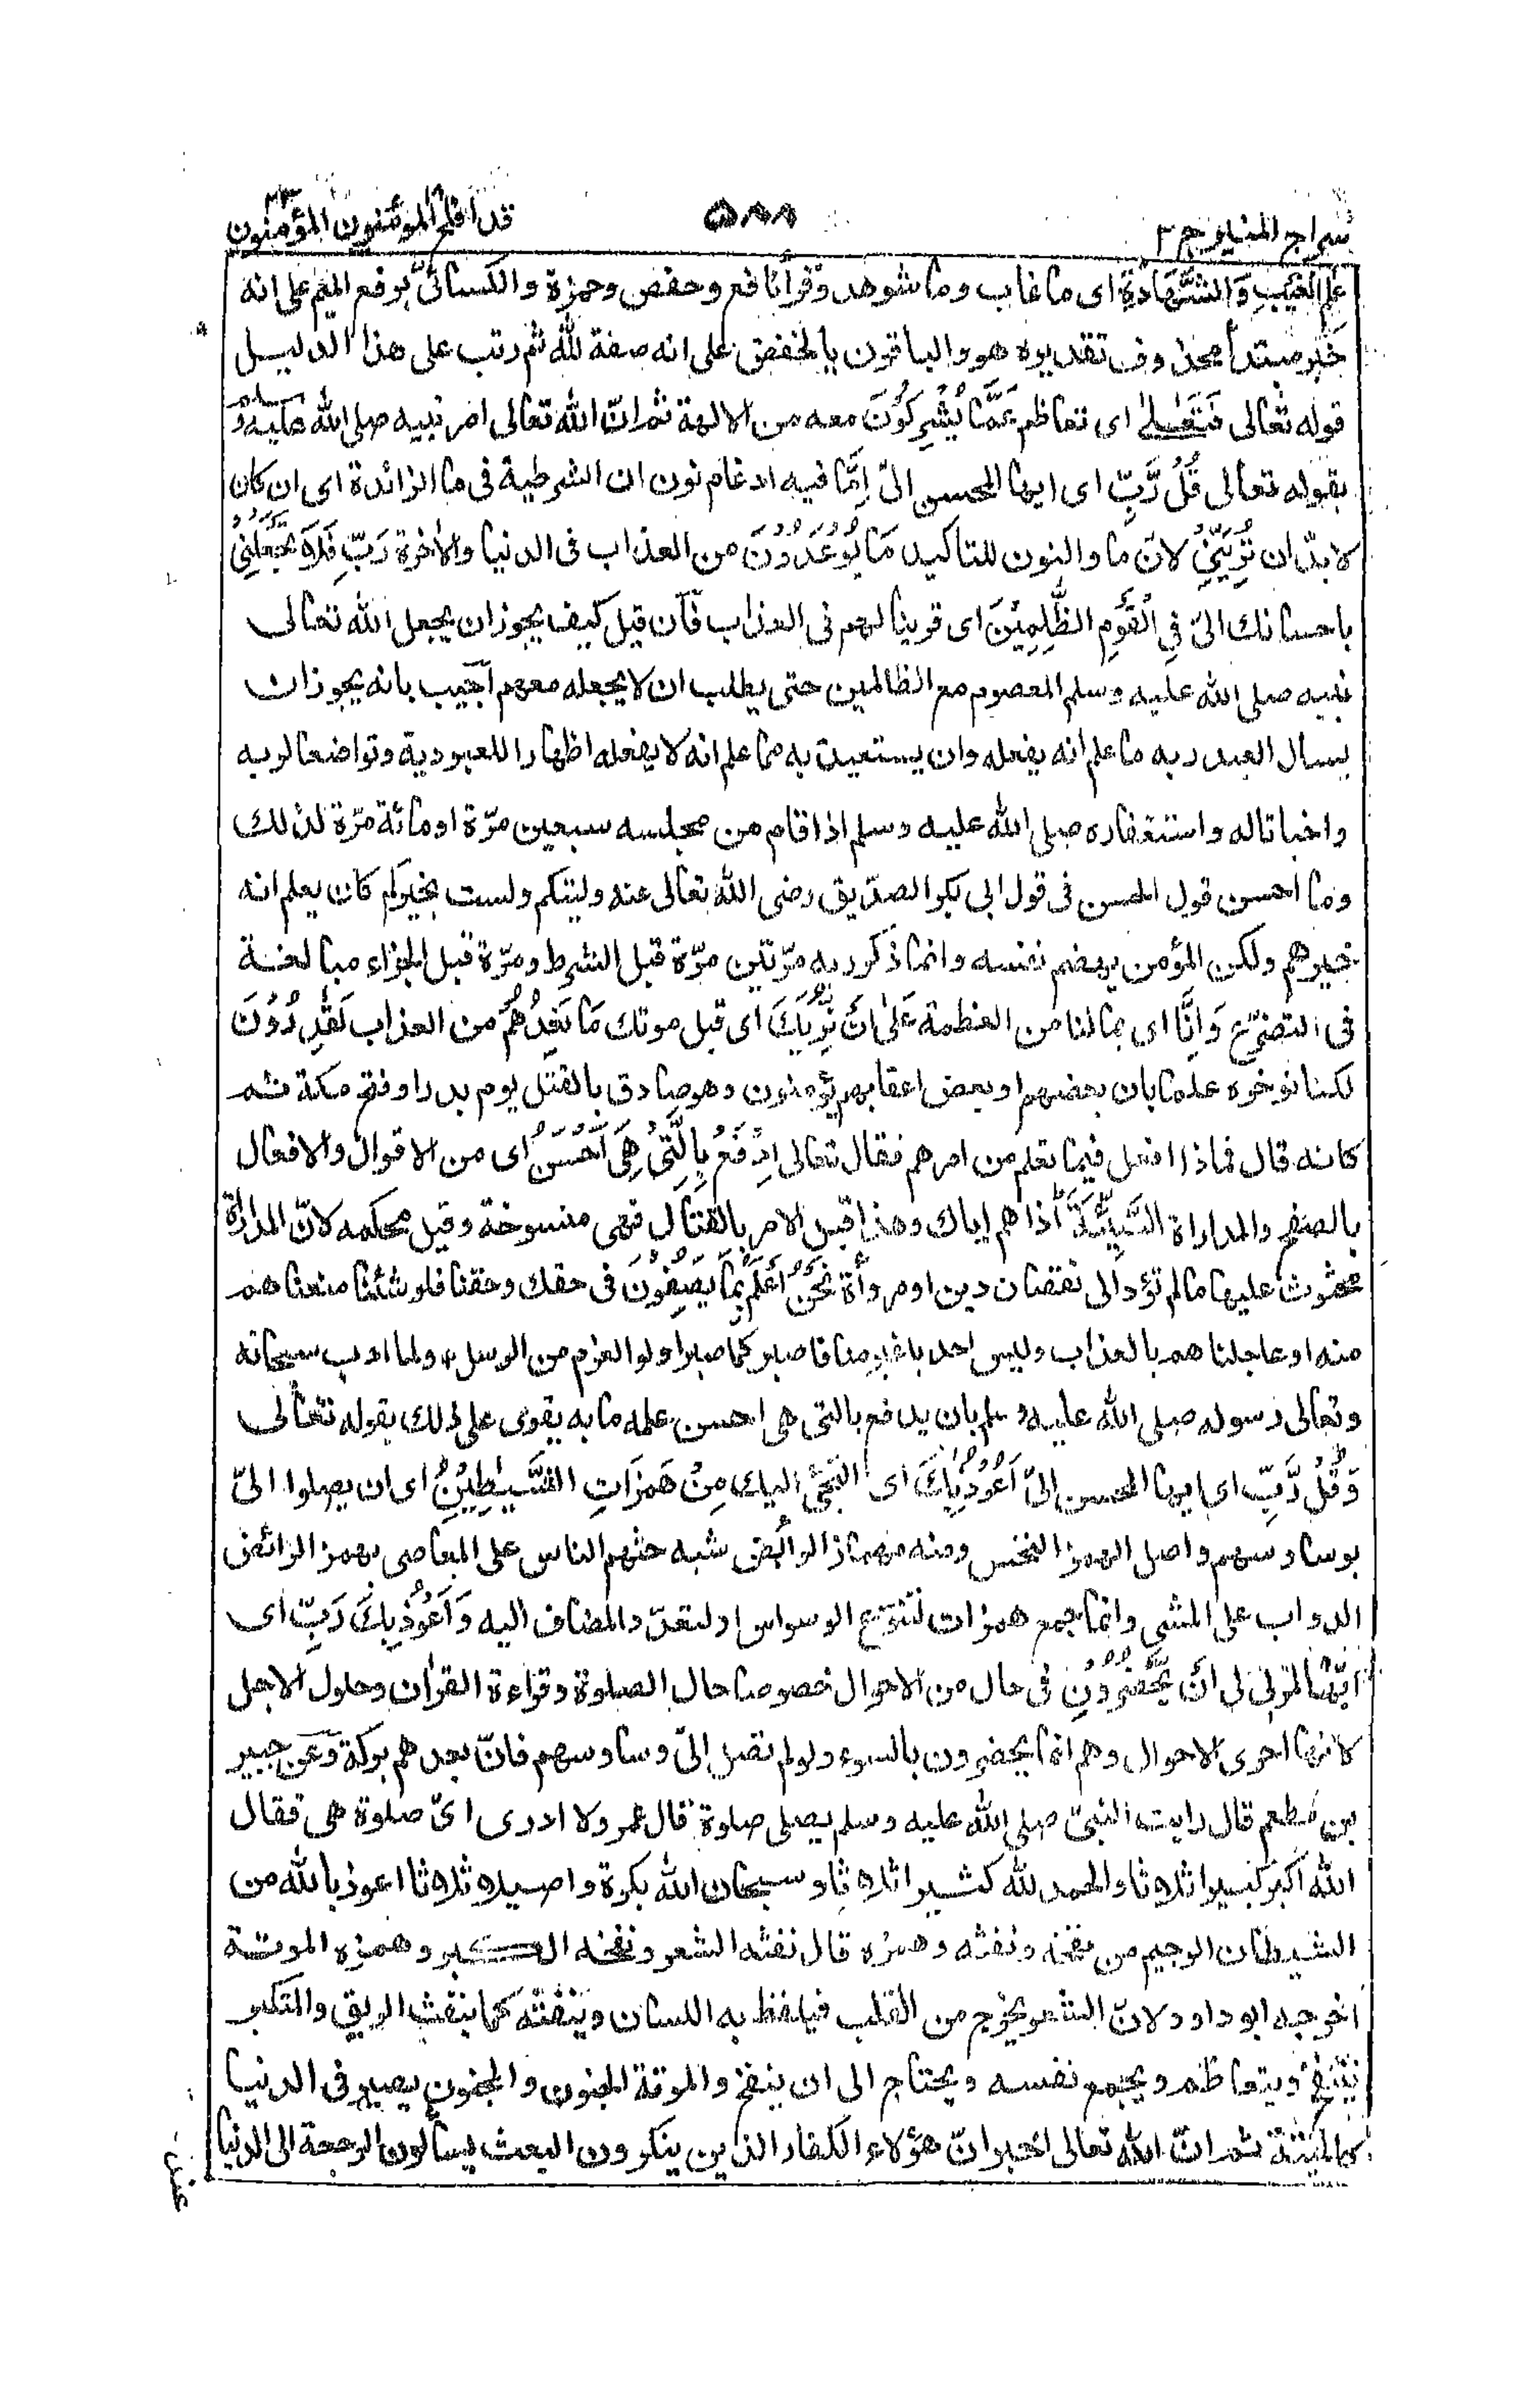 سراج المنير ج ٣
٥٨٨
قد افلح المؤمنون المؤمنون ٢٣
عٰلِمِ الْغَيْبِ وَالشَّهَادَةِ اى ما غاب وما شوهد وقرأ نافع وحفص وحمزة والكسائىّ برفع الميم على انه
خبر مبتدأ محذوف تقديره هو والباقون بالخفض على انه صفة لله ثم رتب على هذا الدليل
قوله تعالى فَتَعٰلىٰ اى تعاظم عَمَّا يُشْرِكُوْنَ معه من الالهة ثم انّ الله تعالى امر نبيه صلى الله عليه وسلم
بقوله تعالى قُلْ رَّبِّ اى ايها المحسن الىّ اِمَّا فيه ادغام نون ان الشرطية فى ما الزائدة اى ان كان
لا بدّ ان تُرِيَنِّىْ لانّ ما والنون للتاكيد مَا يُوْعَدُوْنَ من العذاب فى الدنيا والاٰخرة رَبِّ فَلَا تَجْعَلْنِىْ
باحسانك الىّ فِى الْقَوْمِ الظّٰلِمِيْنَ اى قرينا لهم فى العذاب فآن قيل كيف يجوز ان يجعل الله تعالى
نبيه صلى الله عليه وسلم المعصوم مع الظالمين حتى يطلب ان لا يجعله معهم آجيب بانه يجوز ان
يسال العبد ربه ما علم انه يفعله وان يستعيذ به مما علم انه لا يفعله اظهارا للعبودية وتواضعا لربه
واخباتا له واستغفاره صلى الله عليه وسلم اذا قام من مجلسه سبعين مرّة او مائة مرّة لذلك
وما احسن قول الحسن فى قول ابى بكر الصدّيق رضى الله تعالى عنه وليتكم ولست بخيركم كان يعلم انه
خيرهم ولكن المؤمن يهضم نفسه وانما ذكر ربه مرّتين مرّة قبل الشرط ومرّة قبل الجزاء مبالغة
فى التضرّع وَاِنَّا اى بما لنا من العظمة عَلىٰ اَنْ نُّرِيَكَ اى قبل موتك مَا نَعِدُهُمْ من العذاب لَقٰدِرُوْنَ
لكنا نؤخره علما بان بعضهم او بعض اعقابهم يؤمنون وهو صادق بالقتل يوم بدر او فتح مكة ثم
كانه قال فماذا افعل فيما تعلم من امرهم فقال تعالى اِدْفَعْ بِالَّتِىْ هِىَ اَحْسَنُ اى من الاقوال والافعال
بالصفح والمداراة السَّيِّئَةَ اذاهم اياك وهذا قبل الامر بالقتال فهى منسوخة وقيل محكمه لانّ المداراة
محثوث عليها ما لم تؤد الى نقصان دين او مروأة نَحْنُ اَعْلَمُ بِمَا يَصِفُوْنَ فى حقك وحقنا فلو شئنا منعناهم
منه او عاجلناهم بالعذاب وليس احد باغير منا فاصبر كما صبر اولو العزم من الرسل، ولما ادب سبحانه
وتعالى رسوله صلى الله عليه وسلم بان يدفع بالتى هى احسن علمه ما به يقوى على ذلك بقوله تعالى
وَقُلْ رَّبِّ اى ايها المحسن الىّ اَعُوْذُ بِكَ اى التجئ اليك مِنْ هَمَزَاتِ الشَّيٰطِيْنِ اى ان يصلوا الىّ
بوساوسهم واصل الهمز النخس ومنه مهماز الرائض شبه حثهم الناس على المعاصى بهمز الرائض
الدواب على المشى وانما جمع همزات لتنوّع الوسواس او لتعدّد المضاف اليه وَاَعُوْذُ بِكَ رَبِّ اى
ايها المربى لى اَنْ يَّحْضُرُوْنِ فى حال من الاحوال خصوصا حال الصلوة وقراءة القراٰن وحلول الاجل
لانها احرى الاحوال وهم انما يحضرون بالسوء ولو لم تصل الىّ وساوسهم فانّ بعدهم بركة وعن جبير
بن مطعم قال رايت النبىّ صلى الله عليه وسلم يصلى صلوة قال عمر ولا ادرى اىّ صلوة هى فقال
الله اكبر كبيرا ثلاثا والحمد لله كثيرا ثلاثا وسبحان الله بكرة واصيلا ثلاثا اعوذ بالله من
الشيطان الرجيم من نفخه ونفثه وهمزه قال نفثه الشعر ونفخه الكبر وهمزه الموتة
اخرجه ابو داود لانّ الشعر يخرج من القلب فيلفظ به اللسان وينفثه كما ينفث الريق والمتكبر
ينتفخ ويتعاظم ويجمع نفسه ويحتاج الى ان ينفخ والموتة الجنون والمجنون يصير فى الدنيا
كالميتة ثم انّ الله تعالى اخبر انّ هؤلاء الكفار الذين ينكرون البعث يسألون الرجعة الى الدنيا